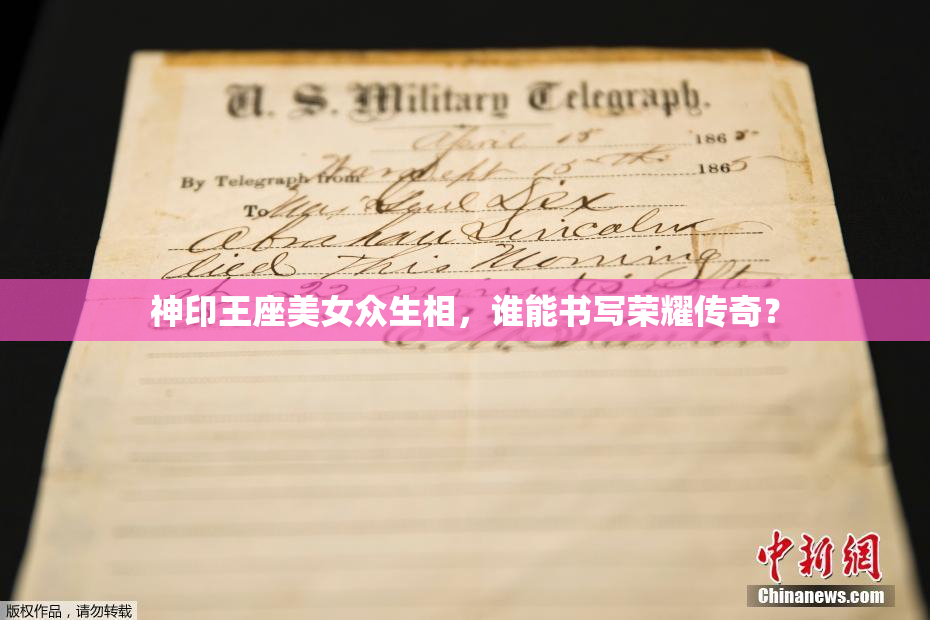 U. S. Military Telegraph.
April 15 1865
By Telegraph from War Dept 15th 1865
To Maj Genl Dix
Abraham Lincoln
died This Morning
at 22 minutes after
神印王座美女众生相，谁能书写荣耀传奇？
E. M. Stanton
中新网
Chinanews.com
版权作品，请勿转载